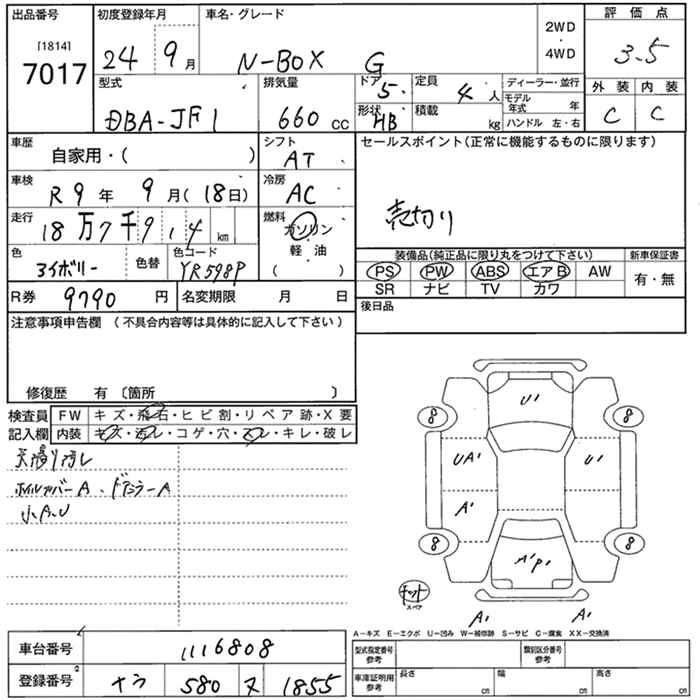 出品番号 初度登録年月 車名・グレード 2WD 評価点
[1814] ・
7017 24 9月 N-BOX G 4WD 3.5
型式 排気量 ドア 5 定員 4人 ディーラー・並行 外装 内装
DBA-JF1 660 cc 形状 HB 積載 kg モデル年式 年 C C
ハンドル 左・右
車歴 自家用・( ) シフト AT セールスポイント(正常に機能するものに限ります)
車検 R9年 9月(18日) 冷房 AC 売切り
走行 18万7千9 1 4 km 燃料 ガソリン
軽・油
( )
色 3イボリー 色替 色コード YR598P 装備品(純正品に限り丸をつけて下さい) 新車保証書
PS PW ABS エアB AW 有・無
SR ナビ TV カワ
R券 9790円 名変期限 月 日 後日品
注意事項申告欄 (不具合内容等は具体的に記入して下さい)
修復歴 有 〔箇所 〕
検査員 FW キズ・飛石・ヒビ割・リペア跡・X要
記入欄 内装 キズ・汚レ・コゲ・穴・スレ・キレ・破レ
天張リ汚レ
ホイルカバーA、ドアミラーA
小A.U
U'
8 8
UA' U'
A'
8 8
A'P'
スペア
A' A'
A-キズ E-エクボ U-凹み W-補修跡 S-サビ C-腐食 XX-交換済
車台番号 1116808 型式指定番号 参考 類別区分番号 参考
登録番号 580 ヌ 1855 車庫証明用 参考 長さ cm 幅 cm 高さ cm